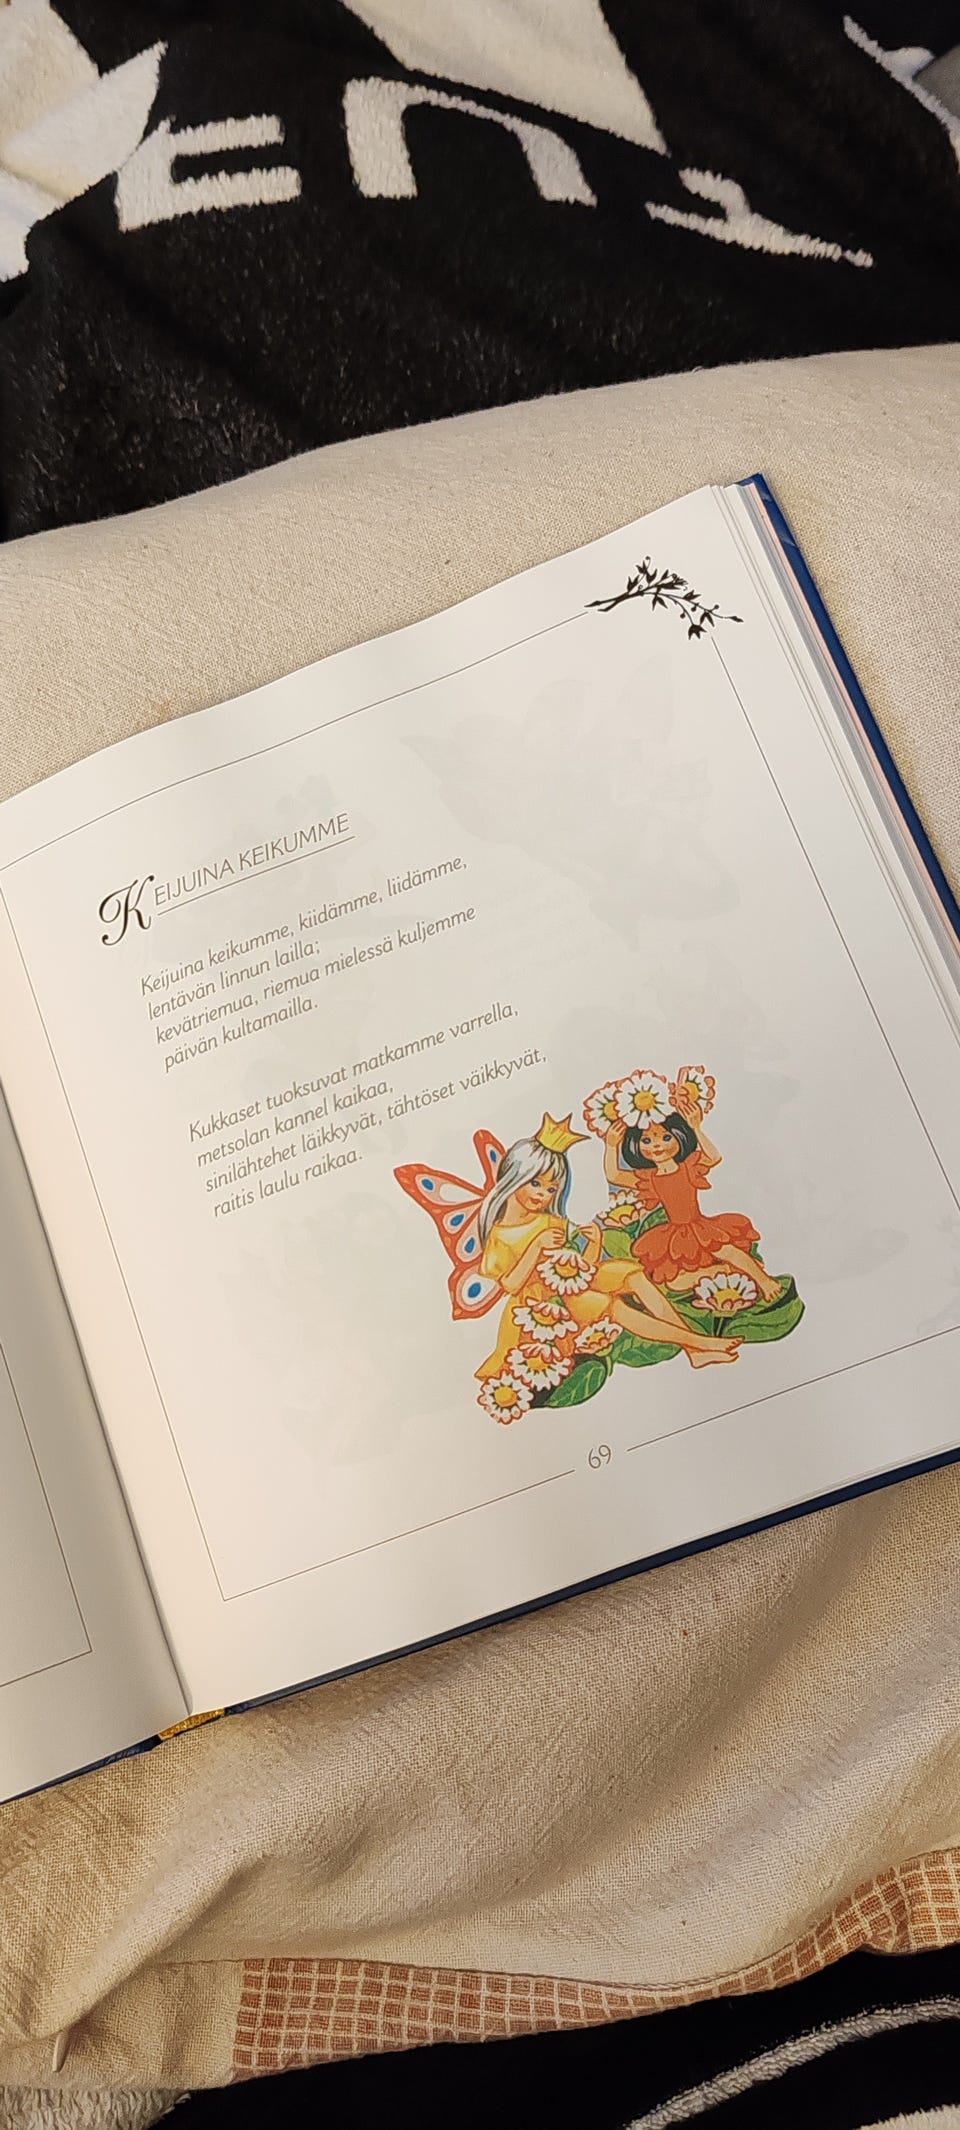 KEIJUINA KEIKUMME
Keijuina keikumme, kiidämme, liidämme,
lentävän linnun lailla;
kevätriemua, riemua mielessä kuljemme
päivän kultamailla.
Kukkaset tuoksuvat matkamme varrella,
metsolan kannel kaikaa,
sinilähtehet läikkyvät, tähtöset väikkyvät,
raitis laulu raikaa.
69